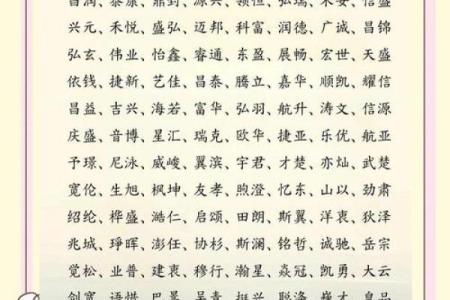 昌润、泰康、鼎到、源兴、领恒、弘瑞、禾安、信盛
兴元、禾悦、盛弘、迈邦、科富、润德、广诚、昌锦
弘玄、伟业、怡鑫、睿通、东盈、展畅、宏世、天盛
依钱、捷新、艺佳、昌泰、腾立、嘉华、顺凯、耀信
昌益、古兴、海若、富华、弘羽、航升、涛文、信源
庆盛、音博、星汇、瑞克、欧华、捷亚、乐优、航亚
予璟、尼泳、威峻、翼滨、宇君、才楚、亦灿、武楚
宽伦、生旭、枫坤、友孝、煦澄、忆东、山以、劲肃
绍纶、桦盛、澔仁、启颂、田朗、斯翼、洋衷、狄泽
兆城、琤晖、澎任、协杉、斯澜、铭哲、诚驰、岳宗
觉松、业普、建衷、穆行、瀚星、焱冠、凯勇、大云
剑寰、语惜、巴景、吴意、挺兴、聪涤、巍才、皇品